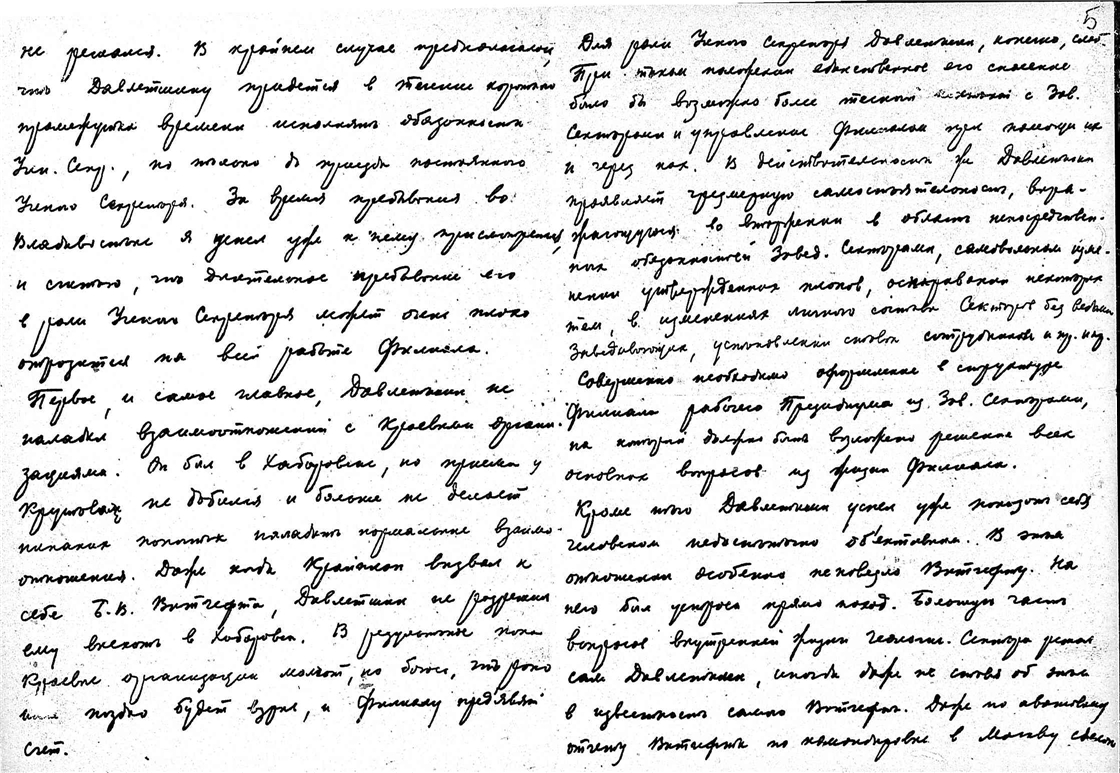 не решался. В крайнем случае предполагалось,
что Давлетшину придется в течение короткого
промежутка времени исполнять обязанности
Учен. Секр., но только до приезда постоянного
Ученого Секретаря. За время пребывания во
Владивостоке я успел уже к нему присмотреться
и считаю, что длительное пребывание его
в роли Ученого Секретаря может очень плохо
отразиться на всей работе Филиала.
Первое, и самое главное, Давлетшин не
наладил взаимоотношений с Краевыми органи-
зациями. Он был в Хабаровске, но приема у
не добился и больше не делает
никаких попыток наладить нормальные взаимо-
отношения. Даже когда Крайплан вызвал к
себе Б.В. Витгефта, Давлетшин не разрешил
ему выехать в Хабаровск. В результате пока
Краевые организации молчат, но боюсь, что рано
или поздно будет взрыв, и Филиалу предъявят
счет.
5
Для роли Ученого Секретаря Давлетшин, конечно, слаб.
При таком положении единственное его спасение
было бы возможно более тесный с Зав.
Секторами и управление Филиалом при помощи их
и через них. В действительности же Давлетшин
проявляет чрезмерную самостоятельность, выра-
жающуюся во вторжении в область непосредствен-
ных обязанностей Завед. Секторами, самовольном изме-
нении утвержденных планов, оспаривании некоторых
тем, в изменениях личного состава Секторов без ведома
Заведывающих, установлении ставок сотрудников и пр. и пр.
Совершенно необходимо оформление в структуре
Филиала рабочего Президиума из Зав. Секторами,
на который должно быть возложено решение всех
основных вопросов из жизни Филиала.
Кроме того Давлетшин успел уже показать себя
человеком недостаточно объективным. В этом
отношении особенно не повезло Витгефту. На
него был устроен прямо поход. Большую часть
вопросов внутренней жизни геологич. Сектора решал
сам Давлетшин, иногда даже не ставя об этом
в известность самого Витгефта. Даже по авансовому
отчету Витгефта по командировке в Москву